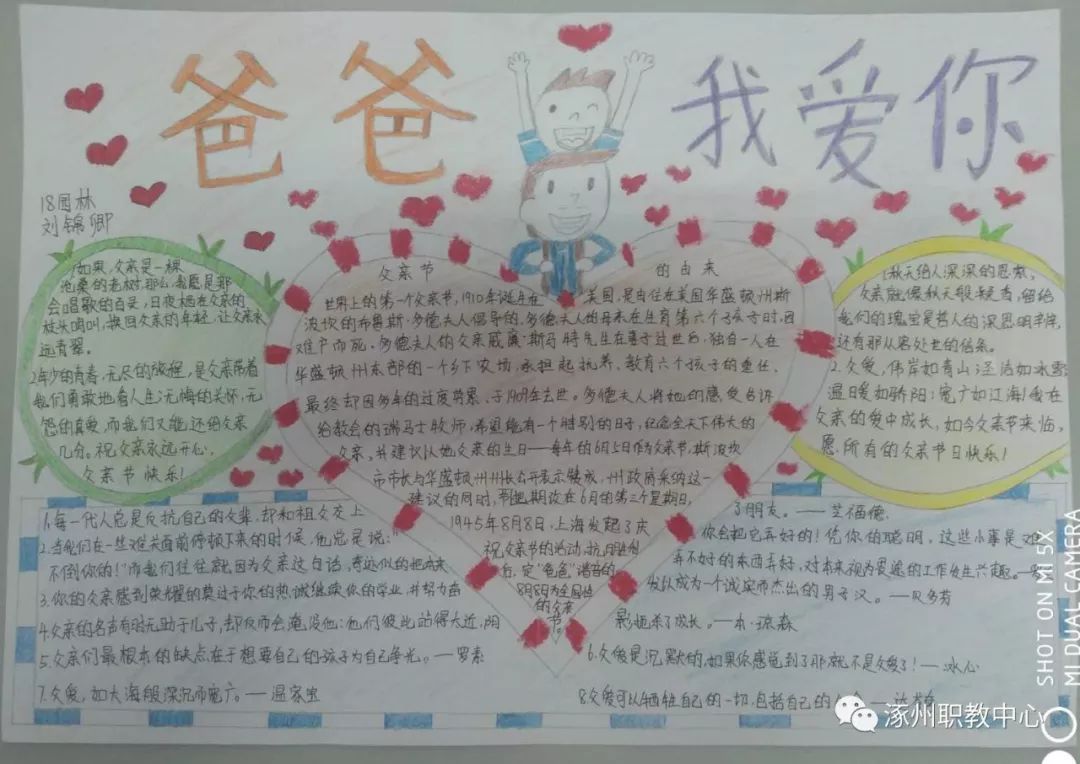 爸爸 我爱你
18园林
刘锦卿
1如果,父亲是一棵
沧桑的老树,那么,我愿是那
会唱歌的百灵,日夜栖在父亲的
枝头鸣叫,换回父亲的年轻,让父亲永
远青翠。
2.年少的青春,无尽的旅程,是父亲带着
我们勇敢地看人生;无悔的关怀,无
怨的真爱,而我们又能还给父亲
几分。祝父亲永远开心,
父亲节快乐!
父亲节 的由来
世界上的第一个父亲节,1910年诞生在 美国,是由住在美国华盛顿州斯
波坎的布鲁斯·多德夫人倡导的,多德夫人的母亲在生育第六个孩子时,因
难产而死。多德夫人的父亲威廉·斯马特先生在妻子过世后,独自一人在
华盛顿州东部的一个乡下农场,承担起抚养、教育六个孩子的重任,
最终却因多年的过度劳累,于1909年去世。多德夫人将她的感受告诉
给教会的瑞马士牧师,希望能有一个特别的日子,纪念全天下伟大的
父亲,并建议以她父亲的生日——每年的6月5日作为父亲节,斯波坎
市市长与华盛顿州州长公开表示赞成,州政府采纳这一
建议的同时,节把期改在6月的第三个星期日,
1945年8月8日,上海发起了庆
祝父亲节的活动,抗日胜利
后,定“爸爸”谐音的
8月8日为全国性
的父亲
节。
1秋天给人深深的思索。
父亲就像秋天般凝香,留给
我们的瑰宝是哲人的深思明辨,
还有那从容处世的信条。
2.父爱,伟岸如青山;圣洁如冰雪;
温日暖如骄阳;宽广如江海!我在
父亲的爱中成长,如今父亲节来临,
愿所有的父亲节日快乐!
1.每一代人总是反抗自己的父辈,却和祖父交上 了朋友。——芒福德.
2.当我们在一些难关面前停顿下来的时候,他总是说:“ 你会把它弄好的!凭你的聪明,这些小事是难
不倒你的!”而我们往往就因为父亲这句话,奇迹似的把本来 弄不好的东西弄好,对本来视为畏途的工作发生兴趣。—罗
3.你的父亲感到荣耀的莫过于你的热诚继续你的学业,并努力奋 发以成为一个诚实而杰出的男子汉。—贝多芬
4.父亲的名声有时无助于儿子,却反而会淹没他:他们彼此站得太近,阴 影扼杀了成长。—本·琼森
5.父亲们最根本的缺点在于想要自己的孩子为自己争光。——罗素
6.父爱是沉默的,如果你感觉到了那就不是父爱了!—冰心
7.父爱,如大海般深沉而宽广。——温家宝
8父爱可以牺牲自己的一切,包括自己的
涿州职教中心
SHOT ON MI 5X
MI DUAL CAMERA